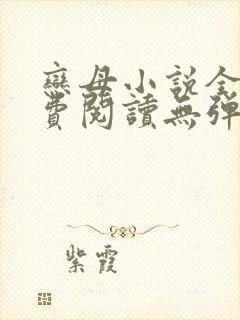 戀母小說全
費閱讀無彈
紫霞